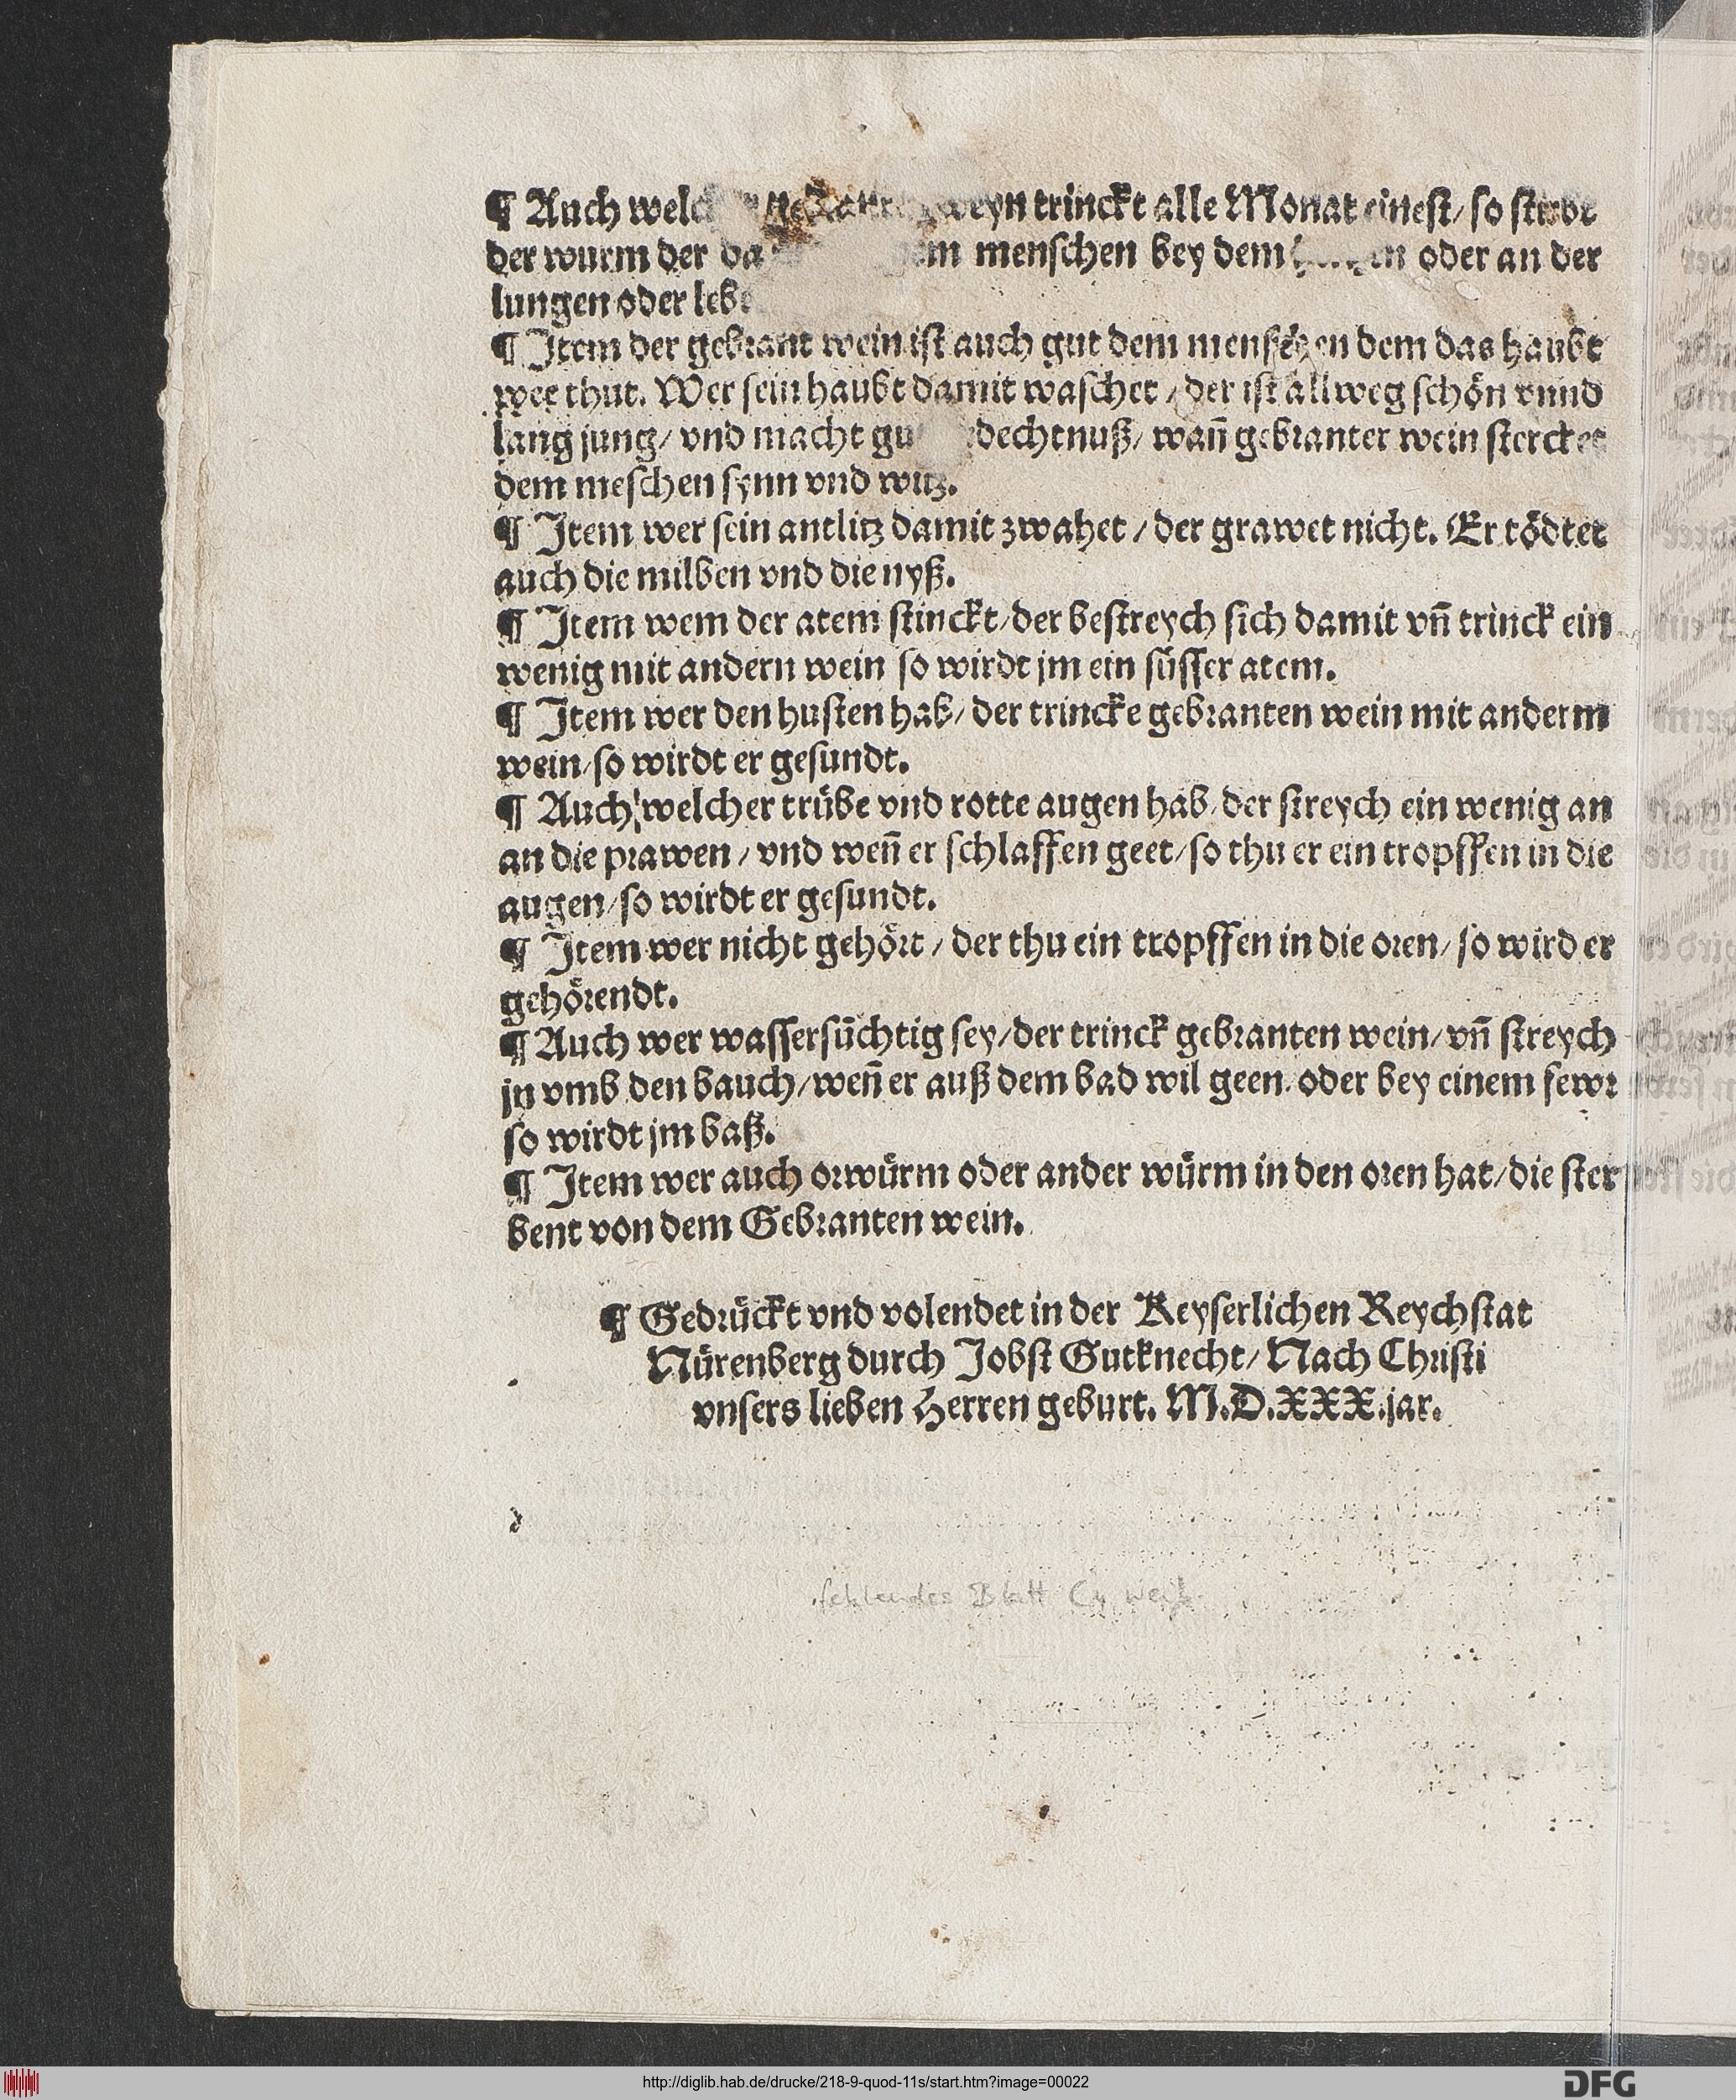 ¶ Auch weyn trinckt alle Monat einest/ so stirbt
der wurm der menschen bey dem oder an der
lungen oder
¶ Item der gebrant wein ist auch gut dem menschen dem das haubt
wee thut. Wer sein haubt damit waschet / der ist allweg schön vnnd
lang jung/ vnd macht wañ gebranter wein stercket
dem meschen synn vnd witz.
¶ Item wer sein antlitz damit zwahet / der grawet nicht. Er tödtet
auch die milben vnd die nyß.
¶ Item wem der atem stinckt/ der bestreych sich damit vñ trinck ein
wenig mit andern wein so wirdt jm ein süsser atem.
¶ Item wer den husten hab/ der trincke gebranten wein mit anderm
wein/ so wirdt er gesundt.
¶ Auch welcher trübe vnd rotte augen hab/ der streych ein wenig an
an die prawen / vnd weñ er schlaffen geet/ so thu er ein tropffen in die
augen/ so wirdt er gesundt.
¶ Item wer nicht gehört / der thu ein tropffen in die oren/ so wird er
gehörendt.
¶ Auch wer wassersüchtig sey/ der trinck gebranten wein/ vñ streych
jn vmb den bauch/ weñ er auß dem bad wil geen. oder bey einem fewr
so wirdt jm baß.
¶ Item wer auch orwürm oder ander würm in den oren hat/ die ster
bent von dem Gebranten wein.
¶ Gedrückt vnd volendet in der Keyserlichen Reychstat
Nürenberg durch Jobst Gutknecht/ Nach Christi
vnsers lieben Herren geburt. M.D.XXX.jar.
fehlendes Blatt C4 weiß
http://diglib.hab.de/drucke/218-9-quod-11s/start.htm?image=00022
DFG